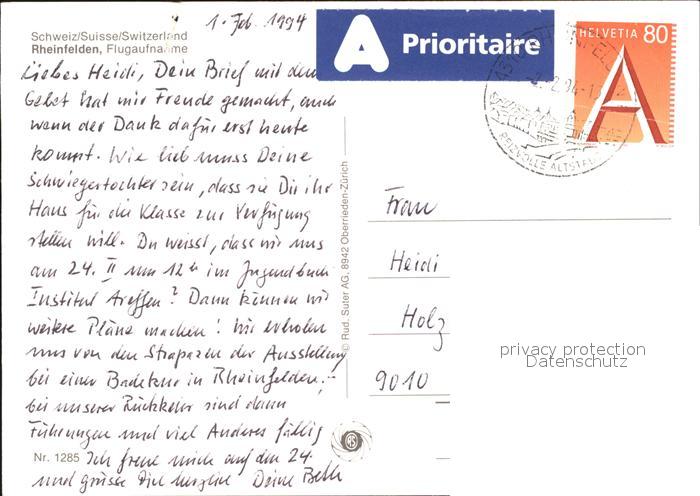 1. Feb. 1994
Schweiz/Suisse/Switzerland
Rheinfelden, Flugaufnahme
Liebes Heidi, Dein Brief mit dem
Gebet hat mir Freude gemacht, auch
wenn der Dank dafür erst heute
kommt. Wie lieb muss Deine
Schwiegertochter sein, dass sie Dir ihr
Haus für die Klasse zur Verfügung
stellen will. Du weisst, dass wir uns
am 24. II um 12 h im Jugendbuch
Institut treffen? Dann können wir
weitere Pläne machen! Wir erholen
uns von den Strapazen der Ausstellung
bei einer Badekur in Rheinfelden.-
bei unserer Rückkehr sind dann
Führungen und viel Anderes fällig
Nr. 1285 Ich freue mich auf den 24.
und grüsse Dich herzlich Deine Beth
© Rud. Suter AG, 8942 Oberrieden-Zürich
A Prioritaire
HELVETIA 80
A
REIZVOLLE ALTSTADT
Frau
Heidi
Holz
9010
privacy protection
Datenschutz